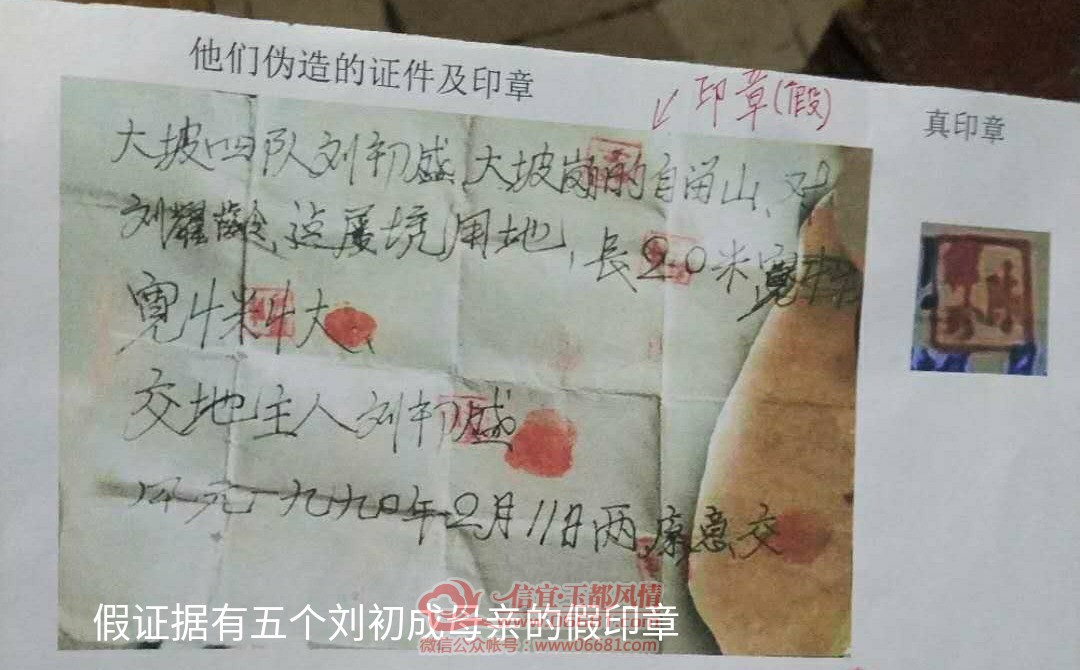 他们伪造的证件及印章
印章(假)
真印章
大坡四队刘初盛,大坡岗的自留山、对
刘耀 用地,長20米寬
寛4米4大、
交地主人刘初盛
一九九0年2月11日两 意交
信宜·玉都风情
微信公众帐号:www.06681.com
假证据有五个刘初成母亲的假印章